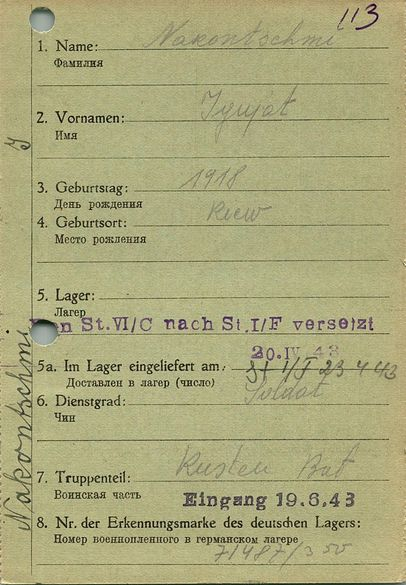 113
1. Name: Nakontschmi
Фамилия
2. Vornamen:
Имя
3. Geburtstag: 1918
День рождения
4. Geburtsort: Kiew
Место рождения
5. Lager:
Лагер
St. VI/C nach St. I/F versetzt
20. IV. 43
5a. Im Lager eingeliefert am: St I/F 23 4 43
Доставлен в лагер (число)
6. Dienstgrad: Soldat
Чин
7. Truppenteil: Kusten Bat
Воинская часть
Eingang 19.6.43
8. Nr. der Erkennungsmarke des deutschen Lagers:
Номер военнопленного в германском лагере
Nakontschmi J